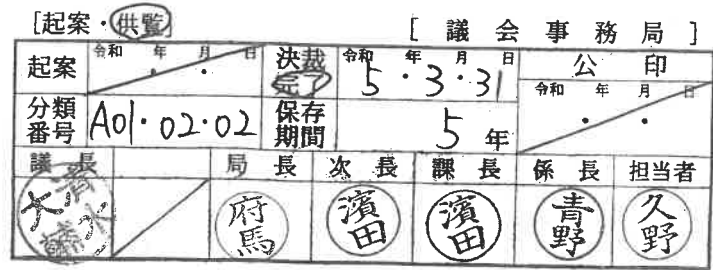 [起案・供覧] [議会事務局]
起案 令和 年 月 日 ・ ・ 決裁完了 令和 年 月 日 5・3・31 公印
分類番号 A01・02・02 保存期間 5年 令和 年 月 日 ・ ・
議長 局長 次長 課長 係長 担当者
清水 府馬 濱田 濱田 青野 久野